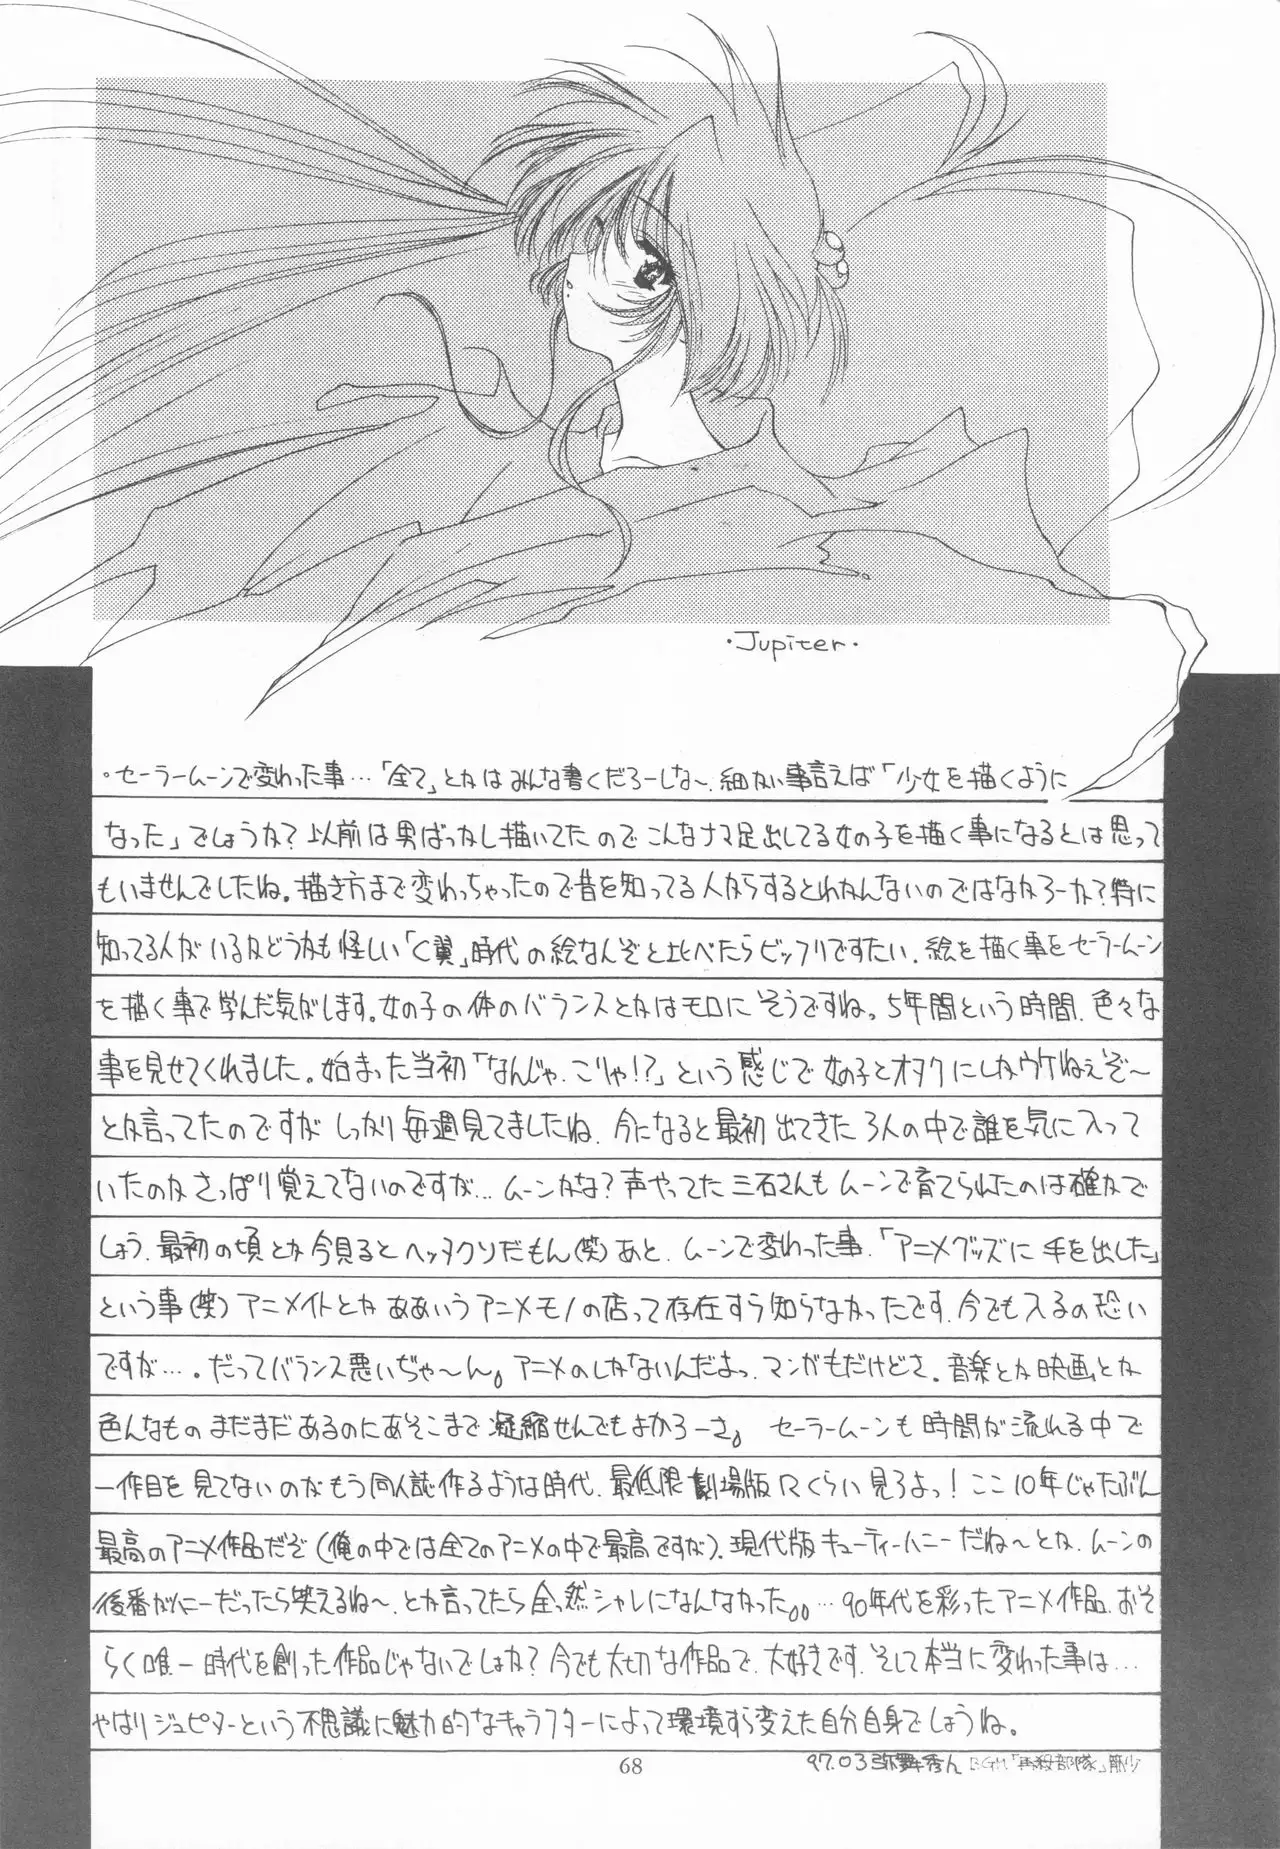 ・Jupiter・
・セーラームーンで変わった事…「全て」とかはみんな書くだろーしな〜.細かい事言えば「少女を描くように
なった」でしょうか?以前は男ばっかし描いてたのでこんなナマ足出してる女の子を描く事になるとは思って
もいませんでしたね。描き方まで変わっちゃったので昔を知ってる人からするとわかんないのではなかろーか?特に
知ってる人がいるかどうかも怪しい「C翼」時代の絵なんぞと比べたらビックリですたい.絵を描く事をセーラームーン
を描く事で学んだ気がします。女の子の体のバランスとかはモロにそうですね。5年間という時間.色々な
事を見せてくれました。始まった当初「なんじゃ.こりゃ!?」という感じで女の子とオタクにしかウケねぇぞ〜
とか言ってたのですがしっかり毎週見てましたね.今になると最初出てきた3人の中で誰を気に入って
いたのかさっぱり覚えてないのですが…ムーンかな?声やってた三石さんもムーンで育てられたのは確かで
しょう.最初の頃とか今見るとヘッタクソだもん(笑)あと.ムーンで変わった事.「アニメグッズに手を出した」
という事(笑)アニメイトとかああいうアニメモノの店って存在すら知らなかったです.今でも入るの恐い
ですが…。だってバランス悪いぢゃ〜ん。アニメのしかないんだよっ.マンガもだけどさ.音楽とか映画とか
色んなものまだまだあるのにあそこまで凝縮せんでもよかろーさ。セーラームーンも時間が流れる中で
一作目を見てないのがもう同人誌作るような時代.最低限劇場版Rくらい見ろよっ!ここ10年じゃたぶん
最高のアニメ作品だぞ(俺の中では全てのアニメの中で最高ですが).現代版キューティーハニーだね〜とか.ムーンの
後番がハニーだったら笑えるね〜.とか言ってたら全っ然シャレになんなかった。。…90年代を彩ったアニメ作品.おそ
らく唯一時代を創った作品じゃないでしょか?今でも大切な作品で.大好きです.そして本当に変わった事は…
やはりジュピターという不思議に魅力的なキャラクターによって環境すら変えた自分自身でしょうね。
68
97.03 弥舞秀人 BGM「再殺部隊」筋少